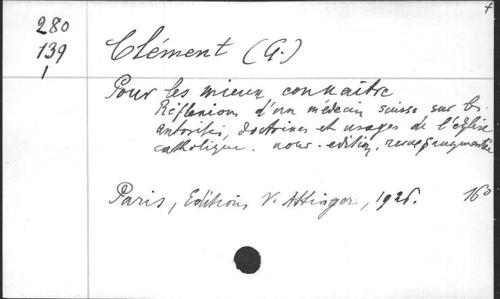 280
139
1
Clément (G.)
Pour les mieux connaître
Réflexions d'un médecin suisse sur les
autorités, doctrines et usages de l'église
catholique. nouv. edition, revue & augmentée
Paris, Editions V. Attinger, 1926. 16°